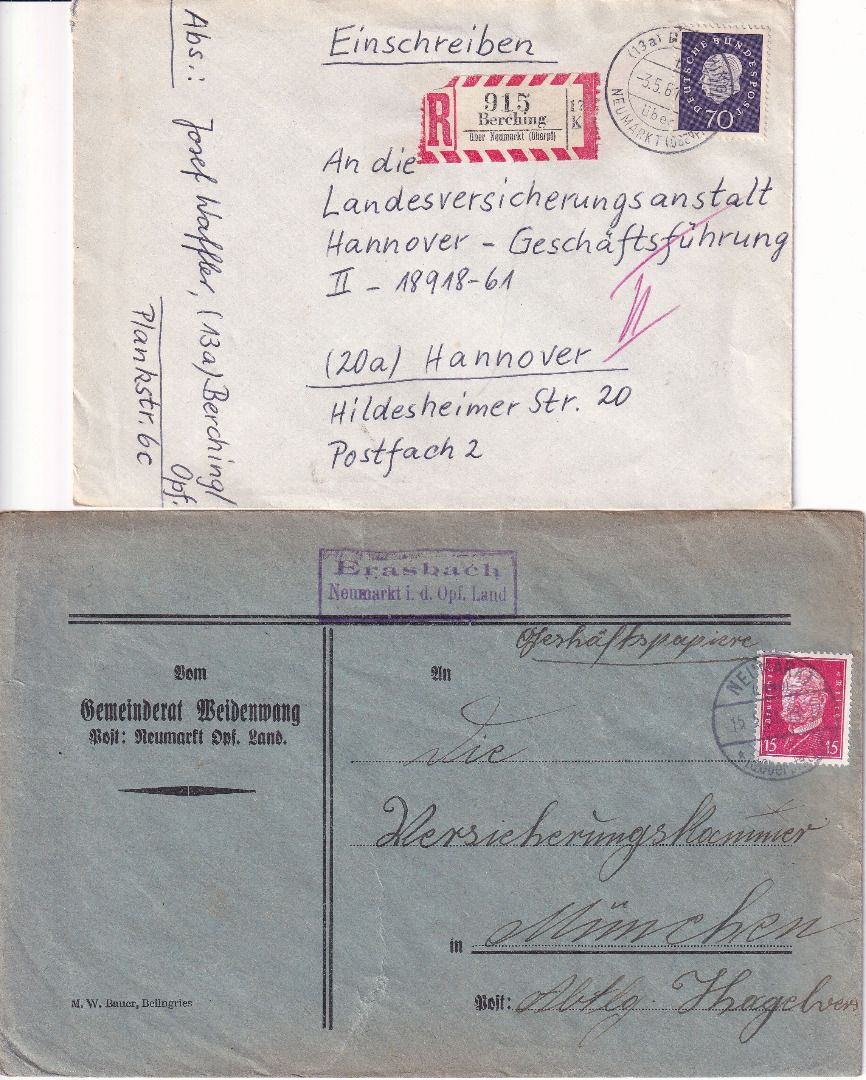 Einschreiben
Abs.: Josef Waffler, (13a) Berching/
Opf.
Plankstr. 6c
R
915
Berching
über Neumarkt (Oberpf)
DEUTSCHE BUNDESPOST
70
(13a)
-3.5.61
über
NEUMARKT (OBERPF)
An die
Landesversicherungsanstalt
Hannover - Geschäftsführung
II - 18918-61
(20a) Hannover
Hildesheimer Str. 20
Postfach 2
Erasbach
Neumarkt i. d. Opf. Land
Geshäftspapiere
Vom
Gemeinderat Weidenwang
Post: Neumarkt Opf. Land.
NEUMARKT
15
15 15
An
Die
Versicherungskammer
in München
Post: Abtlg. Hagelvers
M. W. Bauer, Beilngries